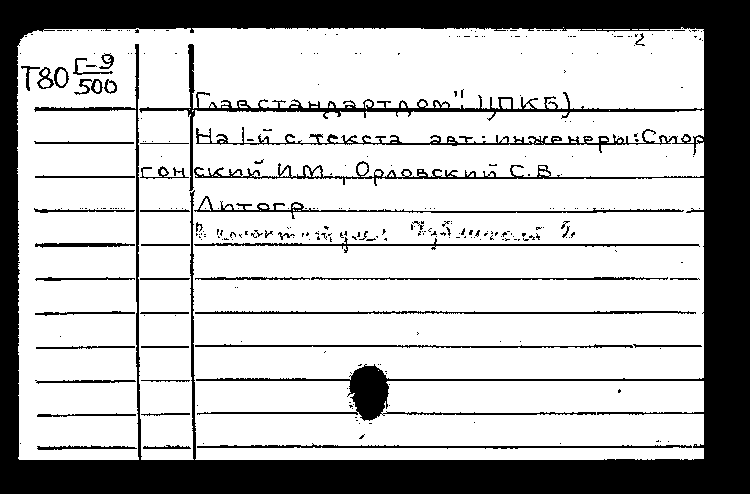 2
Т80 Г-9
500
Главстандартдом". ЦПКБ).
На 1-й с. текста авт.: инженеры: Смор
гонский И.М., Орловский С.В.
Литогр.